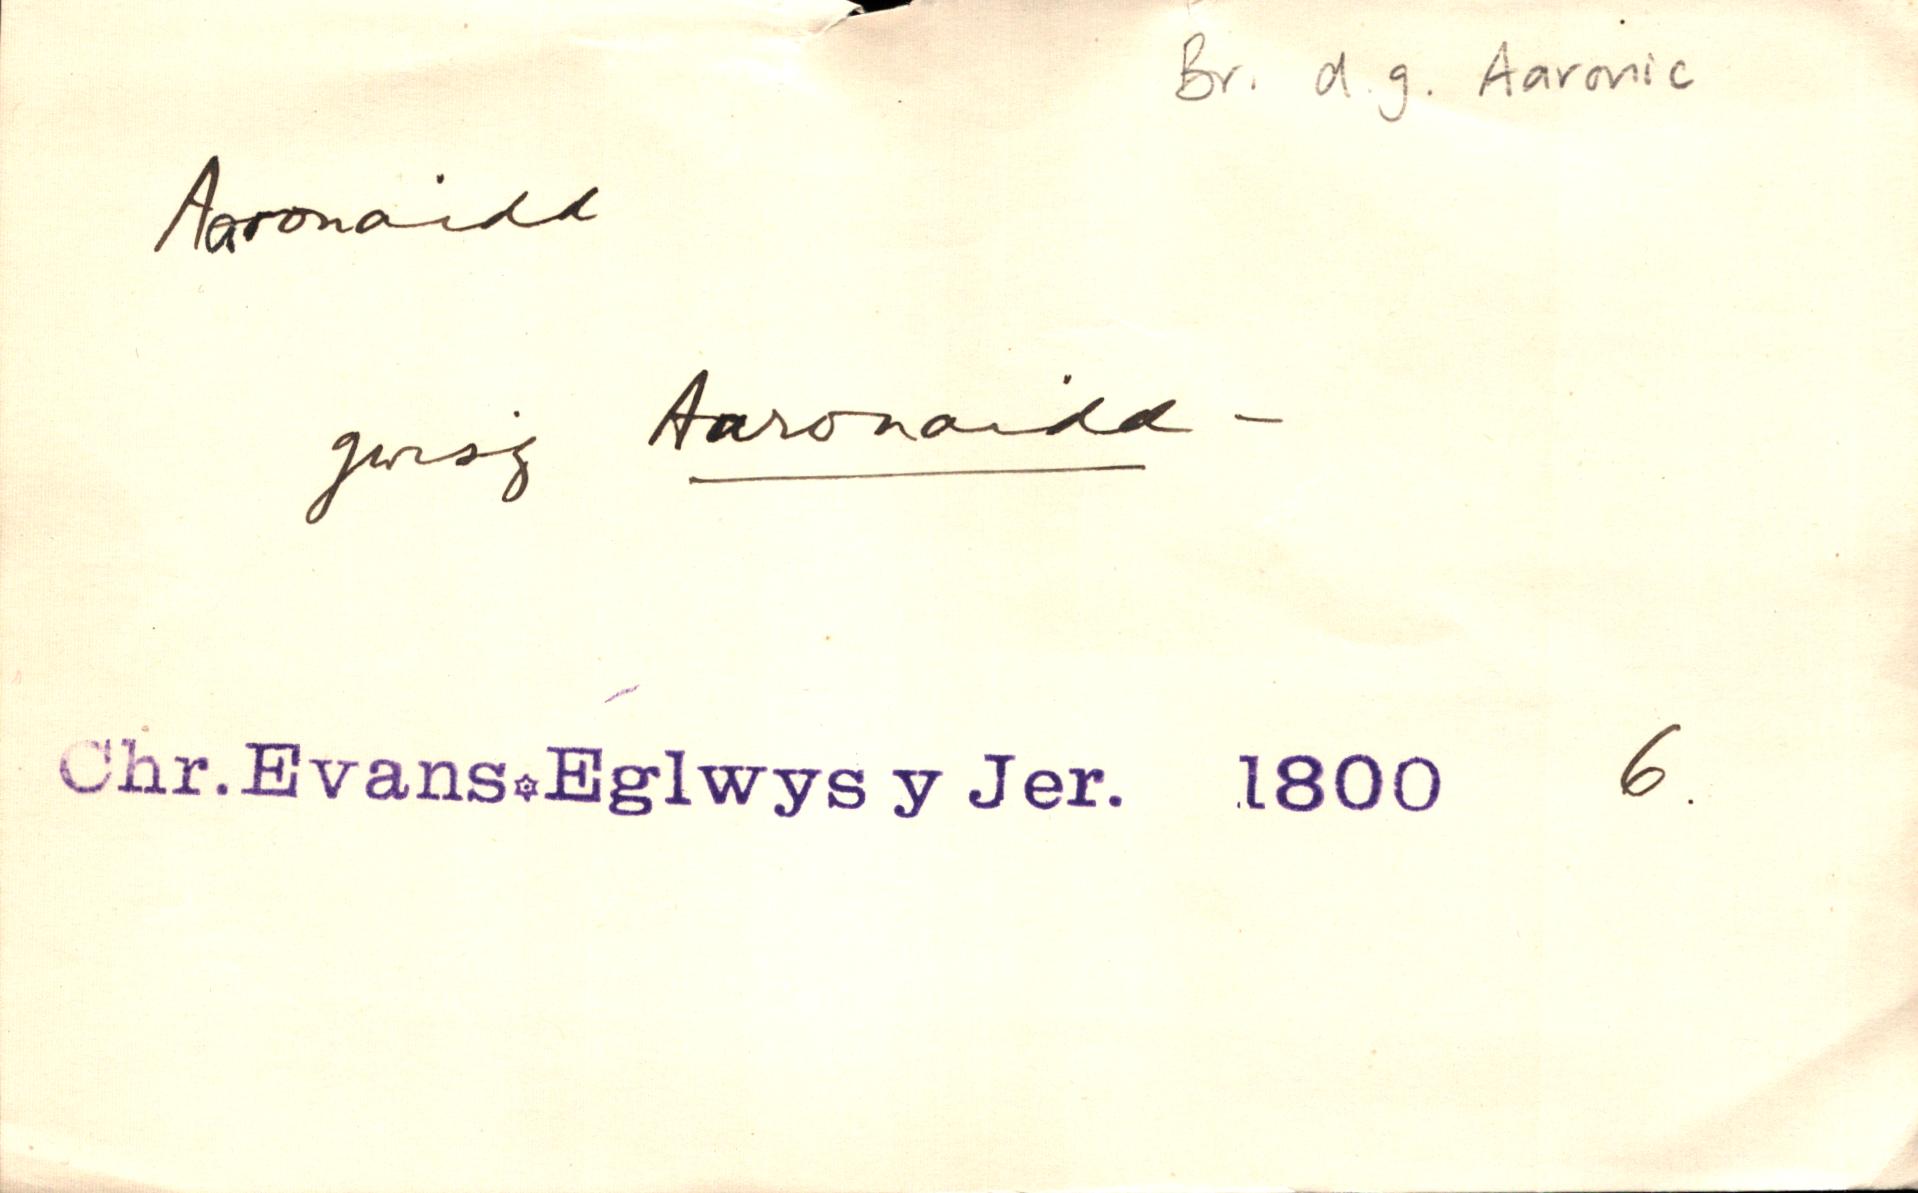 Br. d.g. Aaronic
Aaronaidd
gwisg Aaronaidd –
Chr. Evans*Eglwys y Jer. 1800 6.